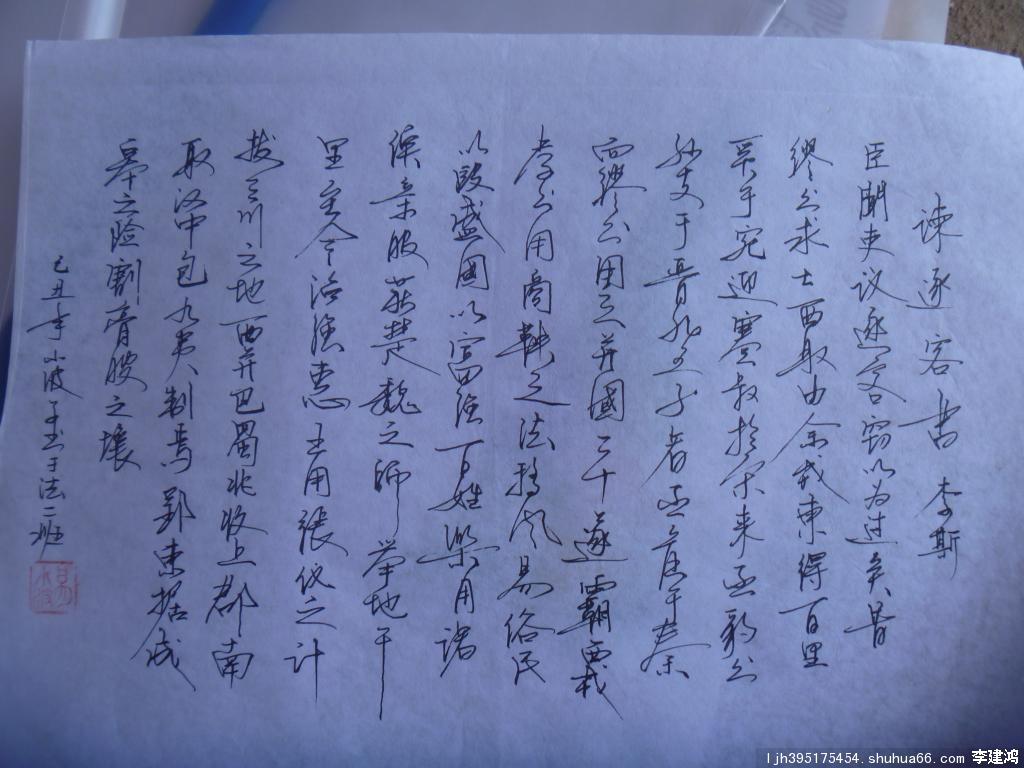 谏逐客书 李斯
臣闻吏议逐客窃以为过矣昔
缪公求士西取由余于戎东得百里
奚于宛迎蹇叔于宋来丕豹公
孙支于晋此五子者不产于秦
而缪公用之并國二十遂霸西戎
孝公用商鞅之法移风易俗民
以殷盛國以富强百姓樂用诸
侯亲服获楚魏之师举地千
里至今治强惠王用张仪之计
拔三川之地西并巴蜀北收上郡南
取汉中包九夷制鄢郢東据成
皋之险割膏腴之壤
己丑年小波 于法二班
ljh395175454. shuhua66. com 李建鸿